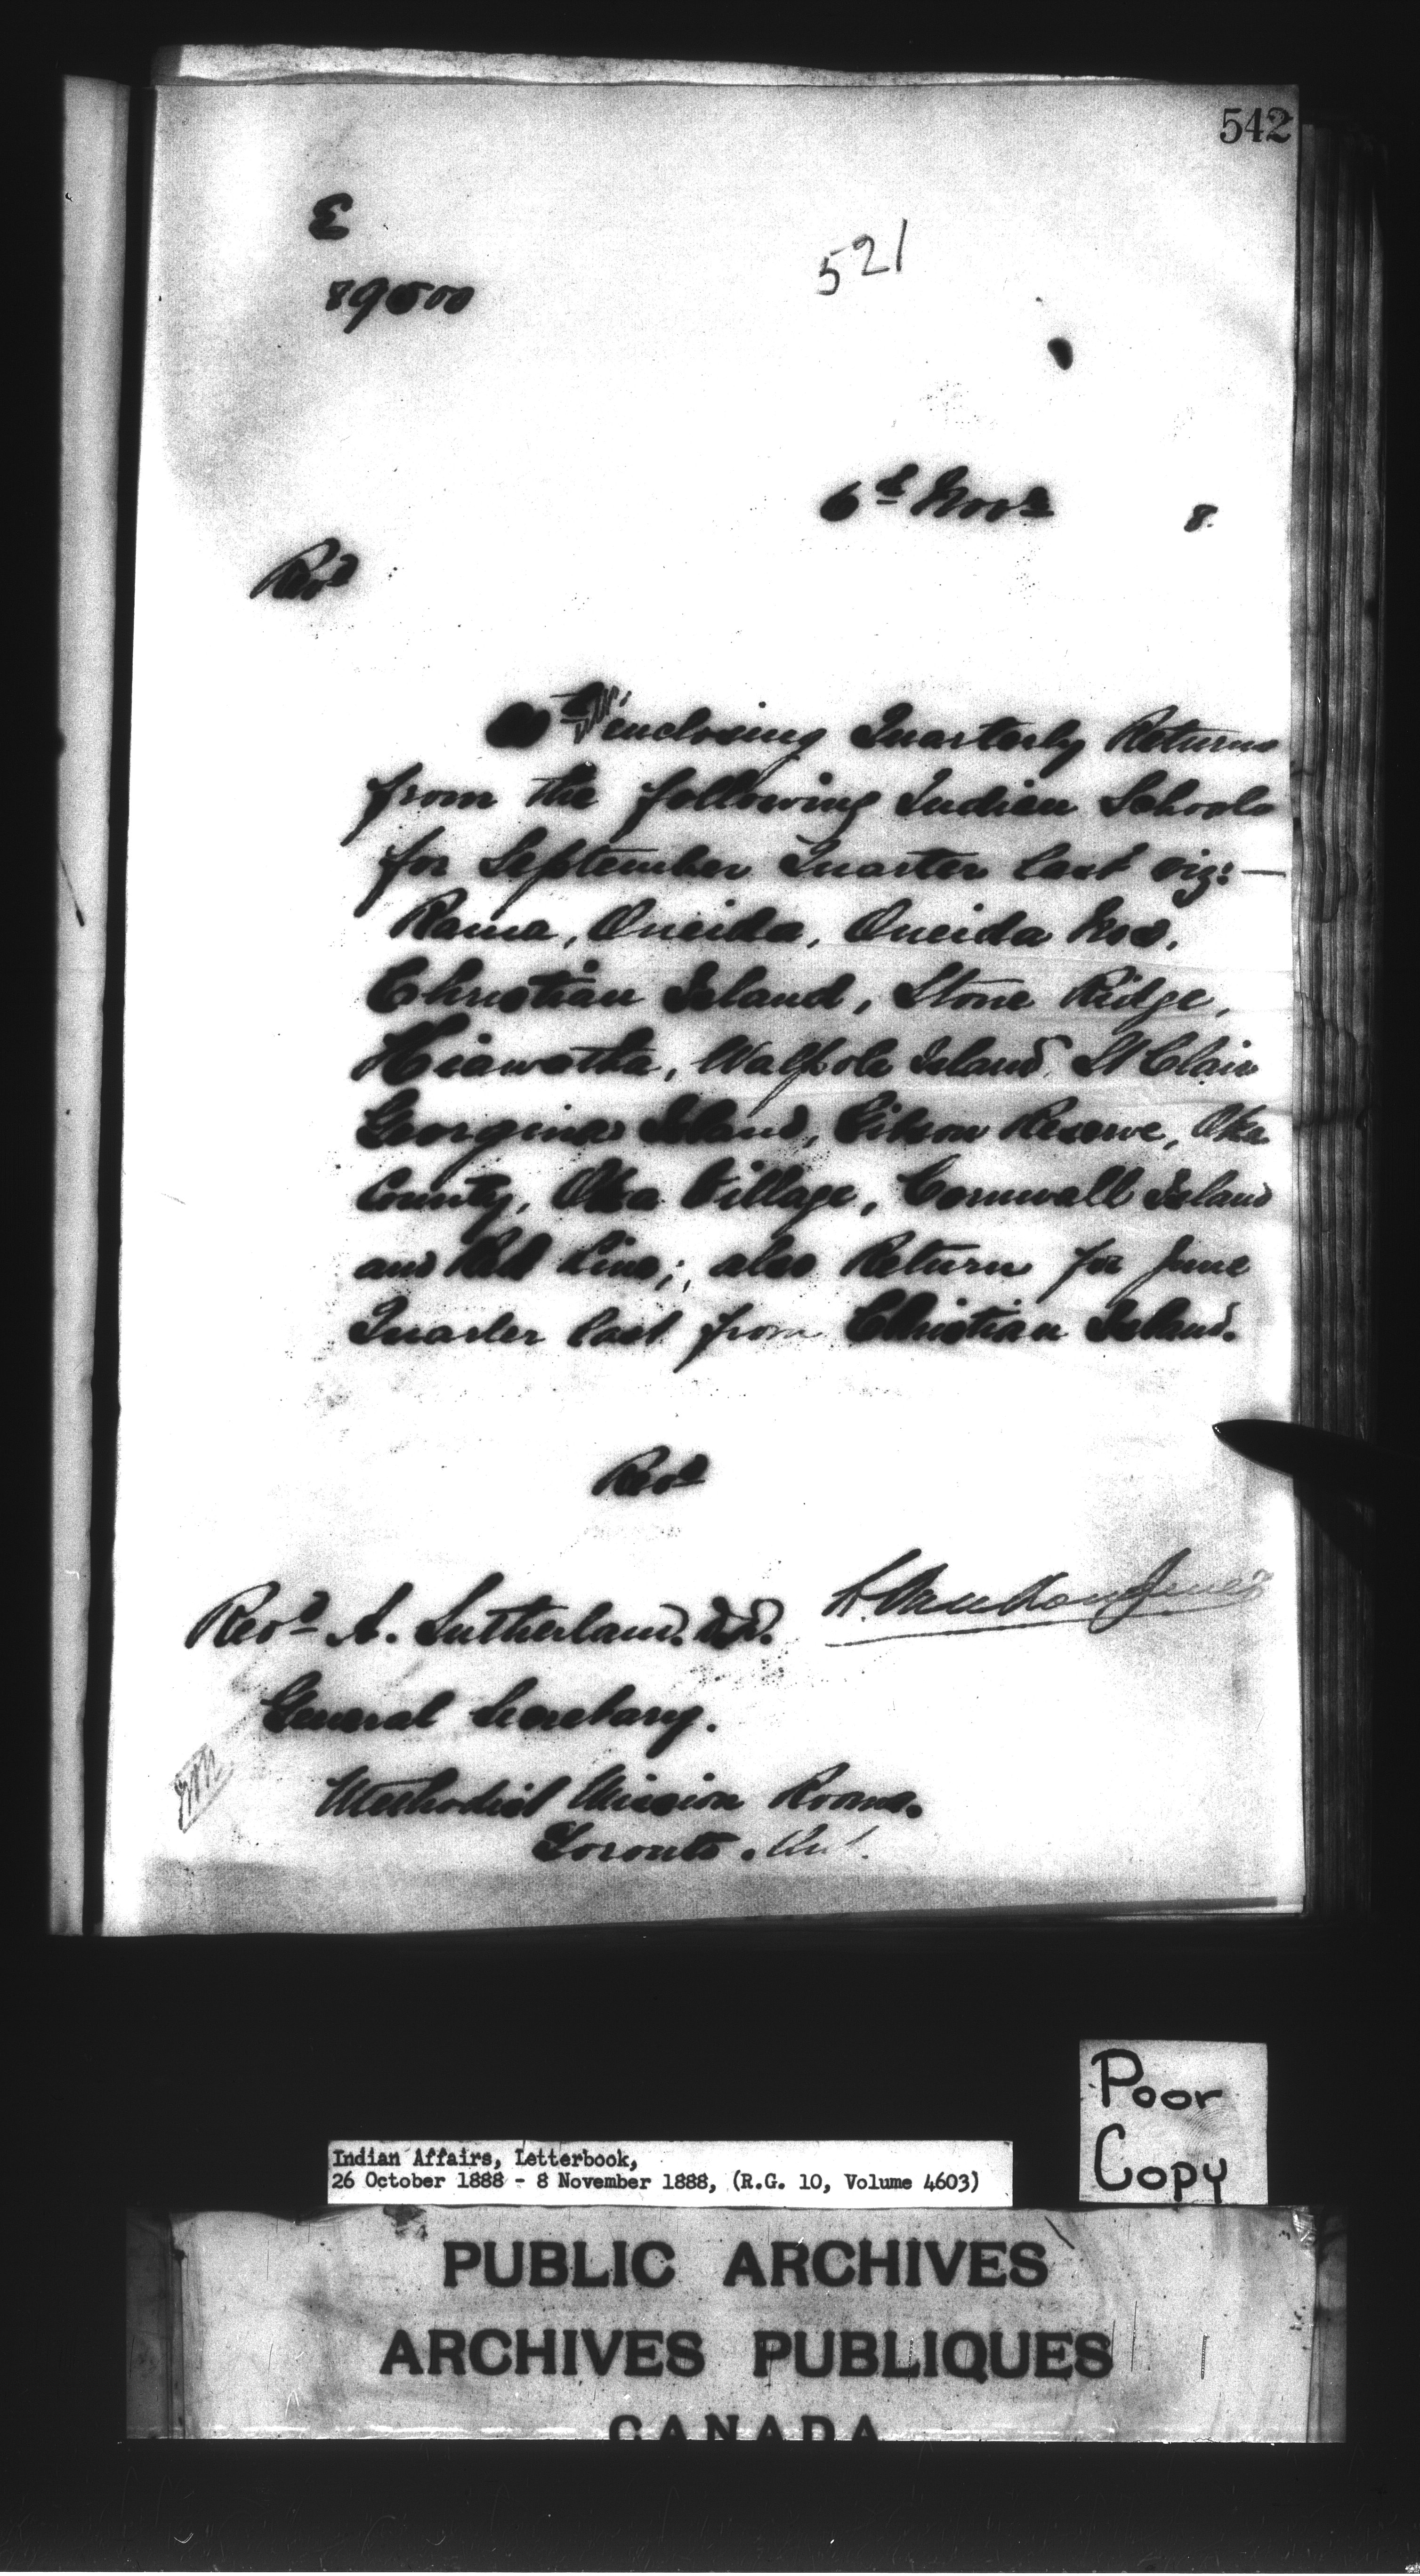 542
E
521
89500
6th Novr 8.
Revd
enclosing Quarterly Returns
from the following Indian Schools
for September Quarter last viz: —
Rama, Oneida, Oneida No 2,
Christian Island, Stone Ridge,
Hiawatha, Walpole Island, St Clair
Georgina Island, Gibson Reserve, Oka
County, Oka Village, Cornwall Island
and Red Line; also Return for June
Quarter last from Christian Island.
Revd
L. Vankoughnet
Revd A. Sutherland. D.D.
General Secretary.
Methodist Mission Rooms.
Toronto. Ont.
Poor
Copy
Indian Affairs, Letterbook,
26 October 1888 - 8 November 1888, (R.G. 10, Volume 4603)
PUBLIC ARCHIVES
ARCHIVES PUBLIQUES
CANADA